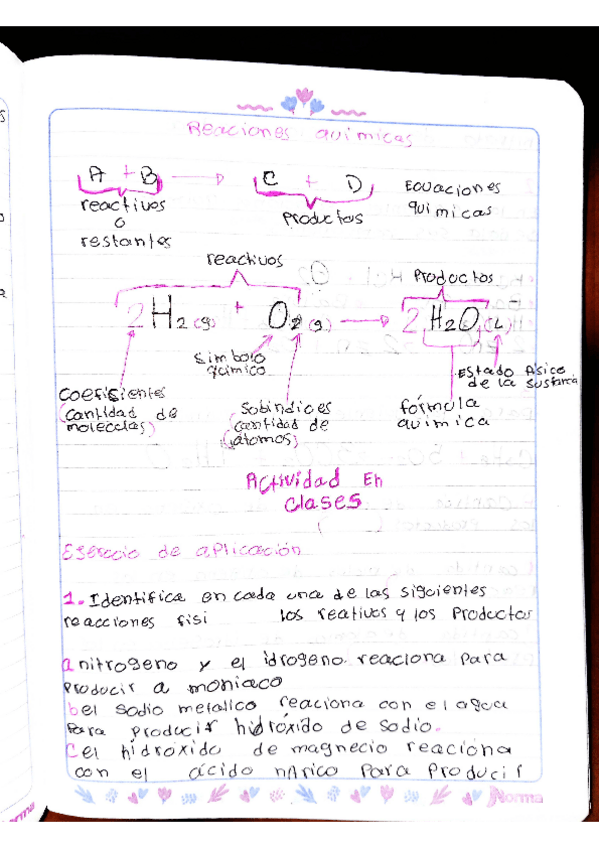 Reaciones quimicas
A + B → C + D
Ecuaciones
quimicas
reactivos
o
restantes
Productos
reactivos
Productos
2H2(g) + O2(g) → 2H2O(L)
Simbolo
quimico
Estado fisico
de la sustancia
coefisientes
(cantidad de
moleculas)
Sobindices
(cantidad de
átomos)
fórmula
quimica
Actividad En
clases
Esercicio de aplicación
1. Identifica en cada una de las siguientes
reacciones fisi los reativos y los Productos
a nitrogeno y el idrogeno reaciona para
Producir a moniaco
b el Sodio metalico reaciona con el agua
Para producir hidróxido de sodio.
C el hidróxido de magnecio reaciona
con el ácido nitrico Para Producir
Norma